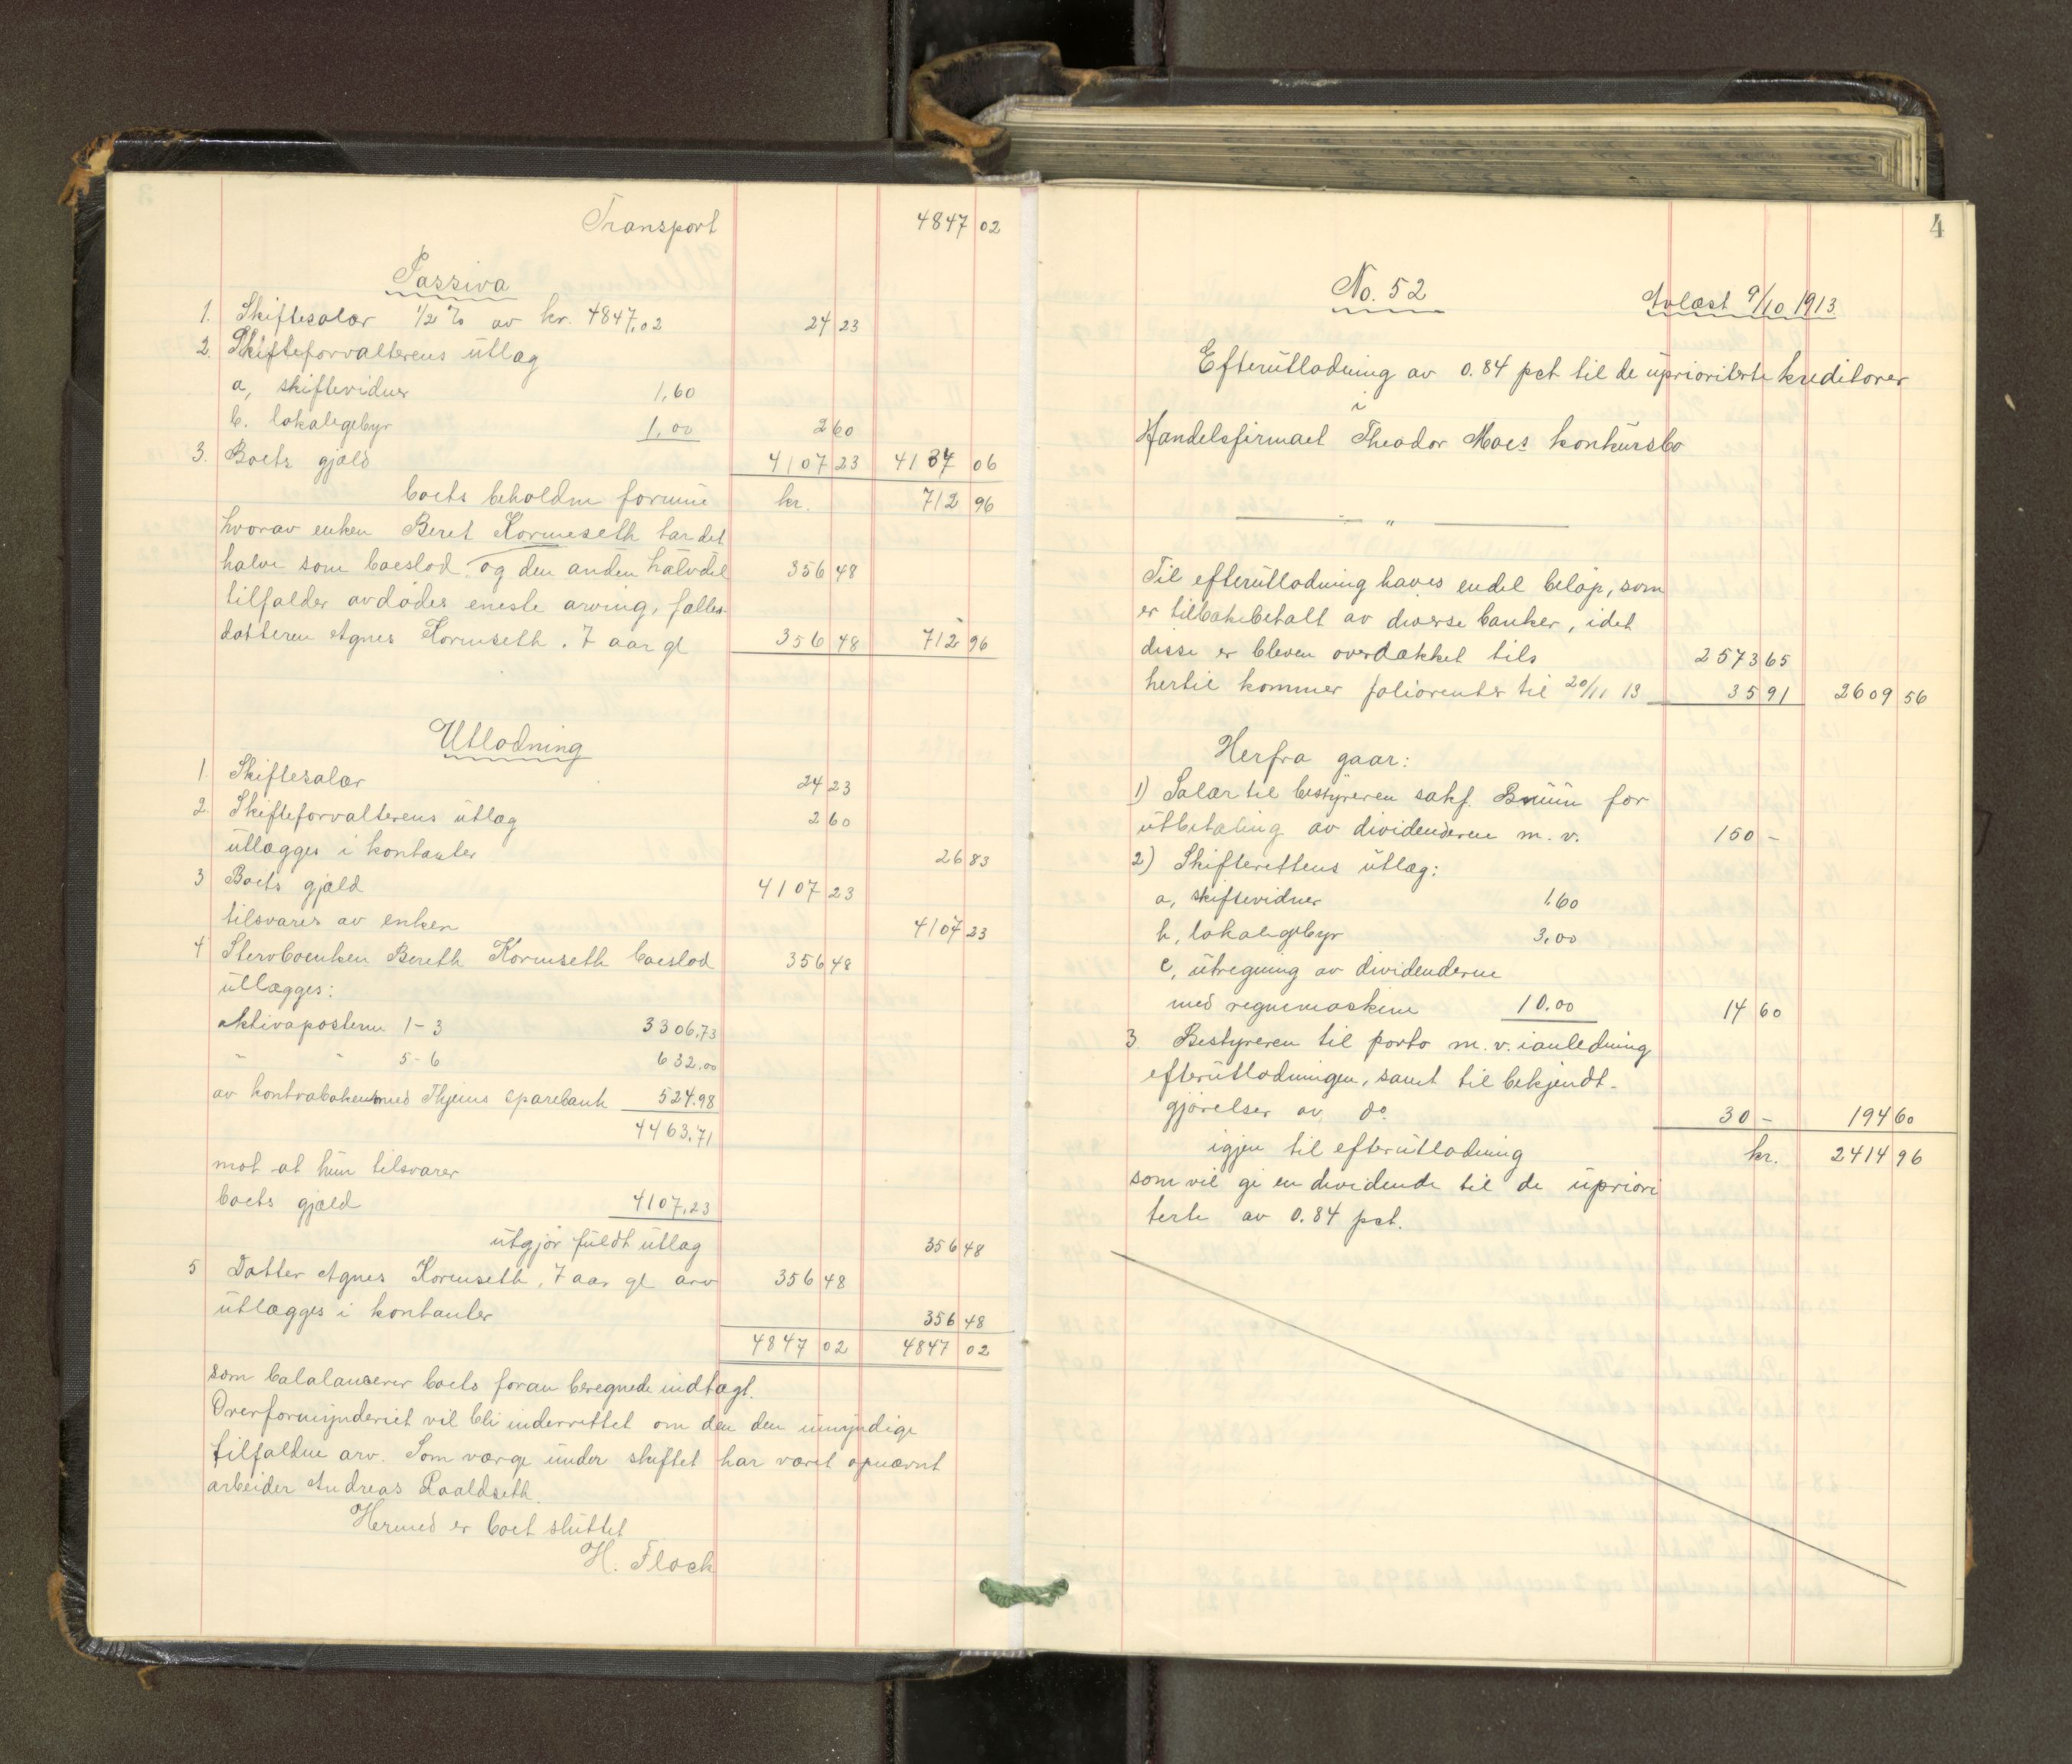 Transport 4847 02
Passiva
1. Skiftesalær 1/2 % av kr. 4847,02 24 23
2. Skifteforvalterens utlæg
a, skiftevidner 1,60
b. lokalegebyr 1,00 2 60
3. Boets gjæld 4107 23 4134 06
boets beholdne formue kr. 712 96
hvorav enken Beret Kormeseth tar det
halve som boeslod og den anden halvdel 356 48
tilfalder avdødes eneste arving, fælles-
datteren Agnes Kormseth. 7 aar gl 356 48 712 96
Utlodning
1. Skiftesalær 24 23
2. Skifteforvalterens utlæg 2 60
utlægges i kontanter 26 83
3 Boets gjæld 4107 23
tilsvares av enken 4107 23
4 Stervboenken Bereth Kormseth boeslod 356 48
utlægges:
aktivaposterne 1-3 3306,73
" " 5-6 632,00
av kontrabøken med Thjems sparebank 524.98
4463,71
mot at hun tilsvarer
boets gjæld 4107,23
utgjør fuldt utlæg 356 48
5 Datter Agnes Kormseth, 7 aar gl arv 356 48
utlægges i kontanter 356 48
4847 02 4847 02
som balalanserer boets foran beregnede indtægt.
Overformynderiet vil bli underrettet om den den umyndige
tilfaldne arv. Som værge under skiftet har været opnævnt
arbeider Andreas Raaldseth.
Hermed er boet sluttet
H. Floch
4
No. 52 Avlæst 9/10 1913.
Efterutlodning av 0.84 pct til de uprioriterte kreditorer
i
Handelsfirmaet Theodor Moes konkursbo
"
Til efterutlodning haves endel beløp, som
er tilbakebetalt av diverse banker, idet
disse er bleven overdækket tils 2573 65
hertil kommer foliorenter til 20/11 13 35 91 2609 56
Herfra gaar:
1) Salær til bestyreren sakf. Bruun for
utbetaling av dividenderne m. v. 150 -
2) Skifterettens utlæg:
a, skiftevidner 1.60
b, lokalegebyr 3.00
c, utregning av dividenderne
med regnemaskine 10.00 14 60
3. Bestyreren til porto m. v. i anledning
efterutlodningen, samt til bekjendt-
gjørelser av do. 30 - 194 60
igjen til efterutlodning kr. 2414 96
som vil gi en dividende til de upriori
terte av 0.84 pct.